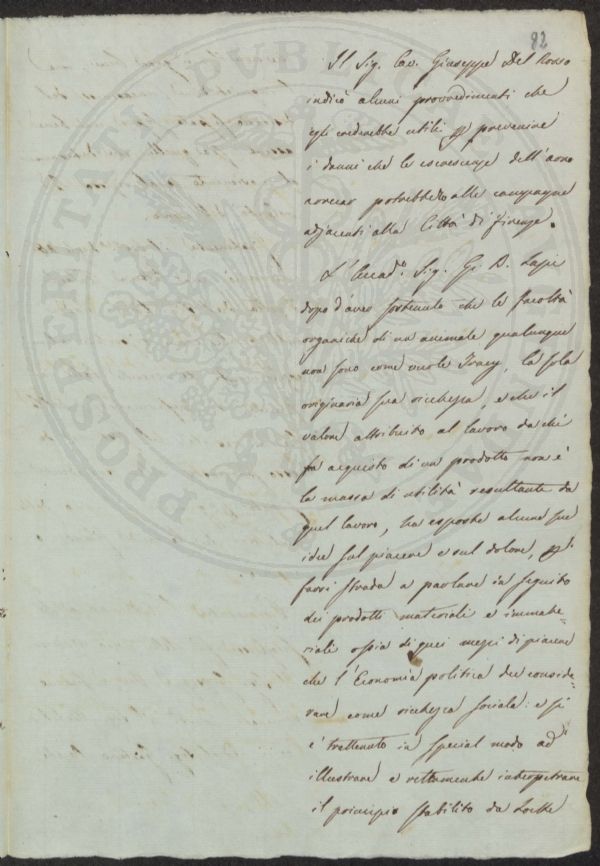 82
Il Sig. Cav. Giuseppe Del Rosso
indicò alcuni provvedimenti che
egli crederebbe utili p prevenire
i danni che le escrescenze dell'arno
arrecar potrebbero alle campagne
adjacenti alla Città di firenze.
L'Accad.º Sig. Gi. B. Lapi
dopo d'aver sostenuto che le facoltà
organiche di un animale qualunque
non sono come vuole Tracy, la sola
originaria sua ricchezza, e che il
valore attribuito al lavoro da chi
fa acquisto di un prodotto non è
la massa di utilità resultante da
quel lavoro, ha esposte alcune sue
idee sul piacere e sul dolore, p
farsi strada a parlare in seguito
dei prodotti materiali e immate-
riali ossia di quei mezzi di piacere
che l'Economia politica dee conside-
rare come ricchezza sociale: e si
è trattenuto in special modo ad
illustrare e rettamente interpetrare
il principio stabilito da Locke
PROSPERITATI PUBLICAE